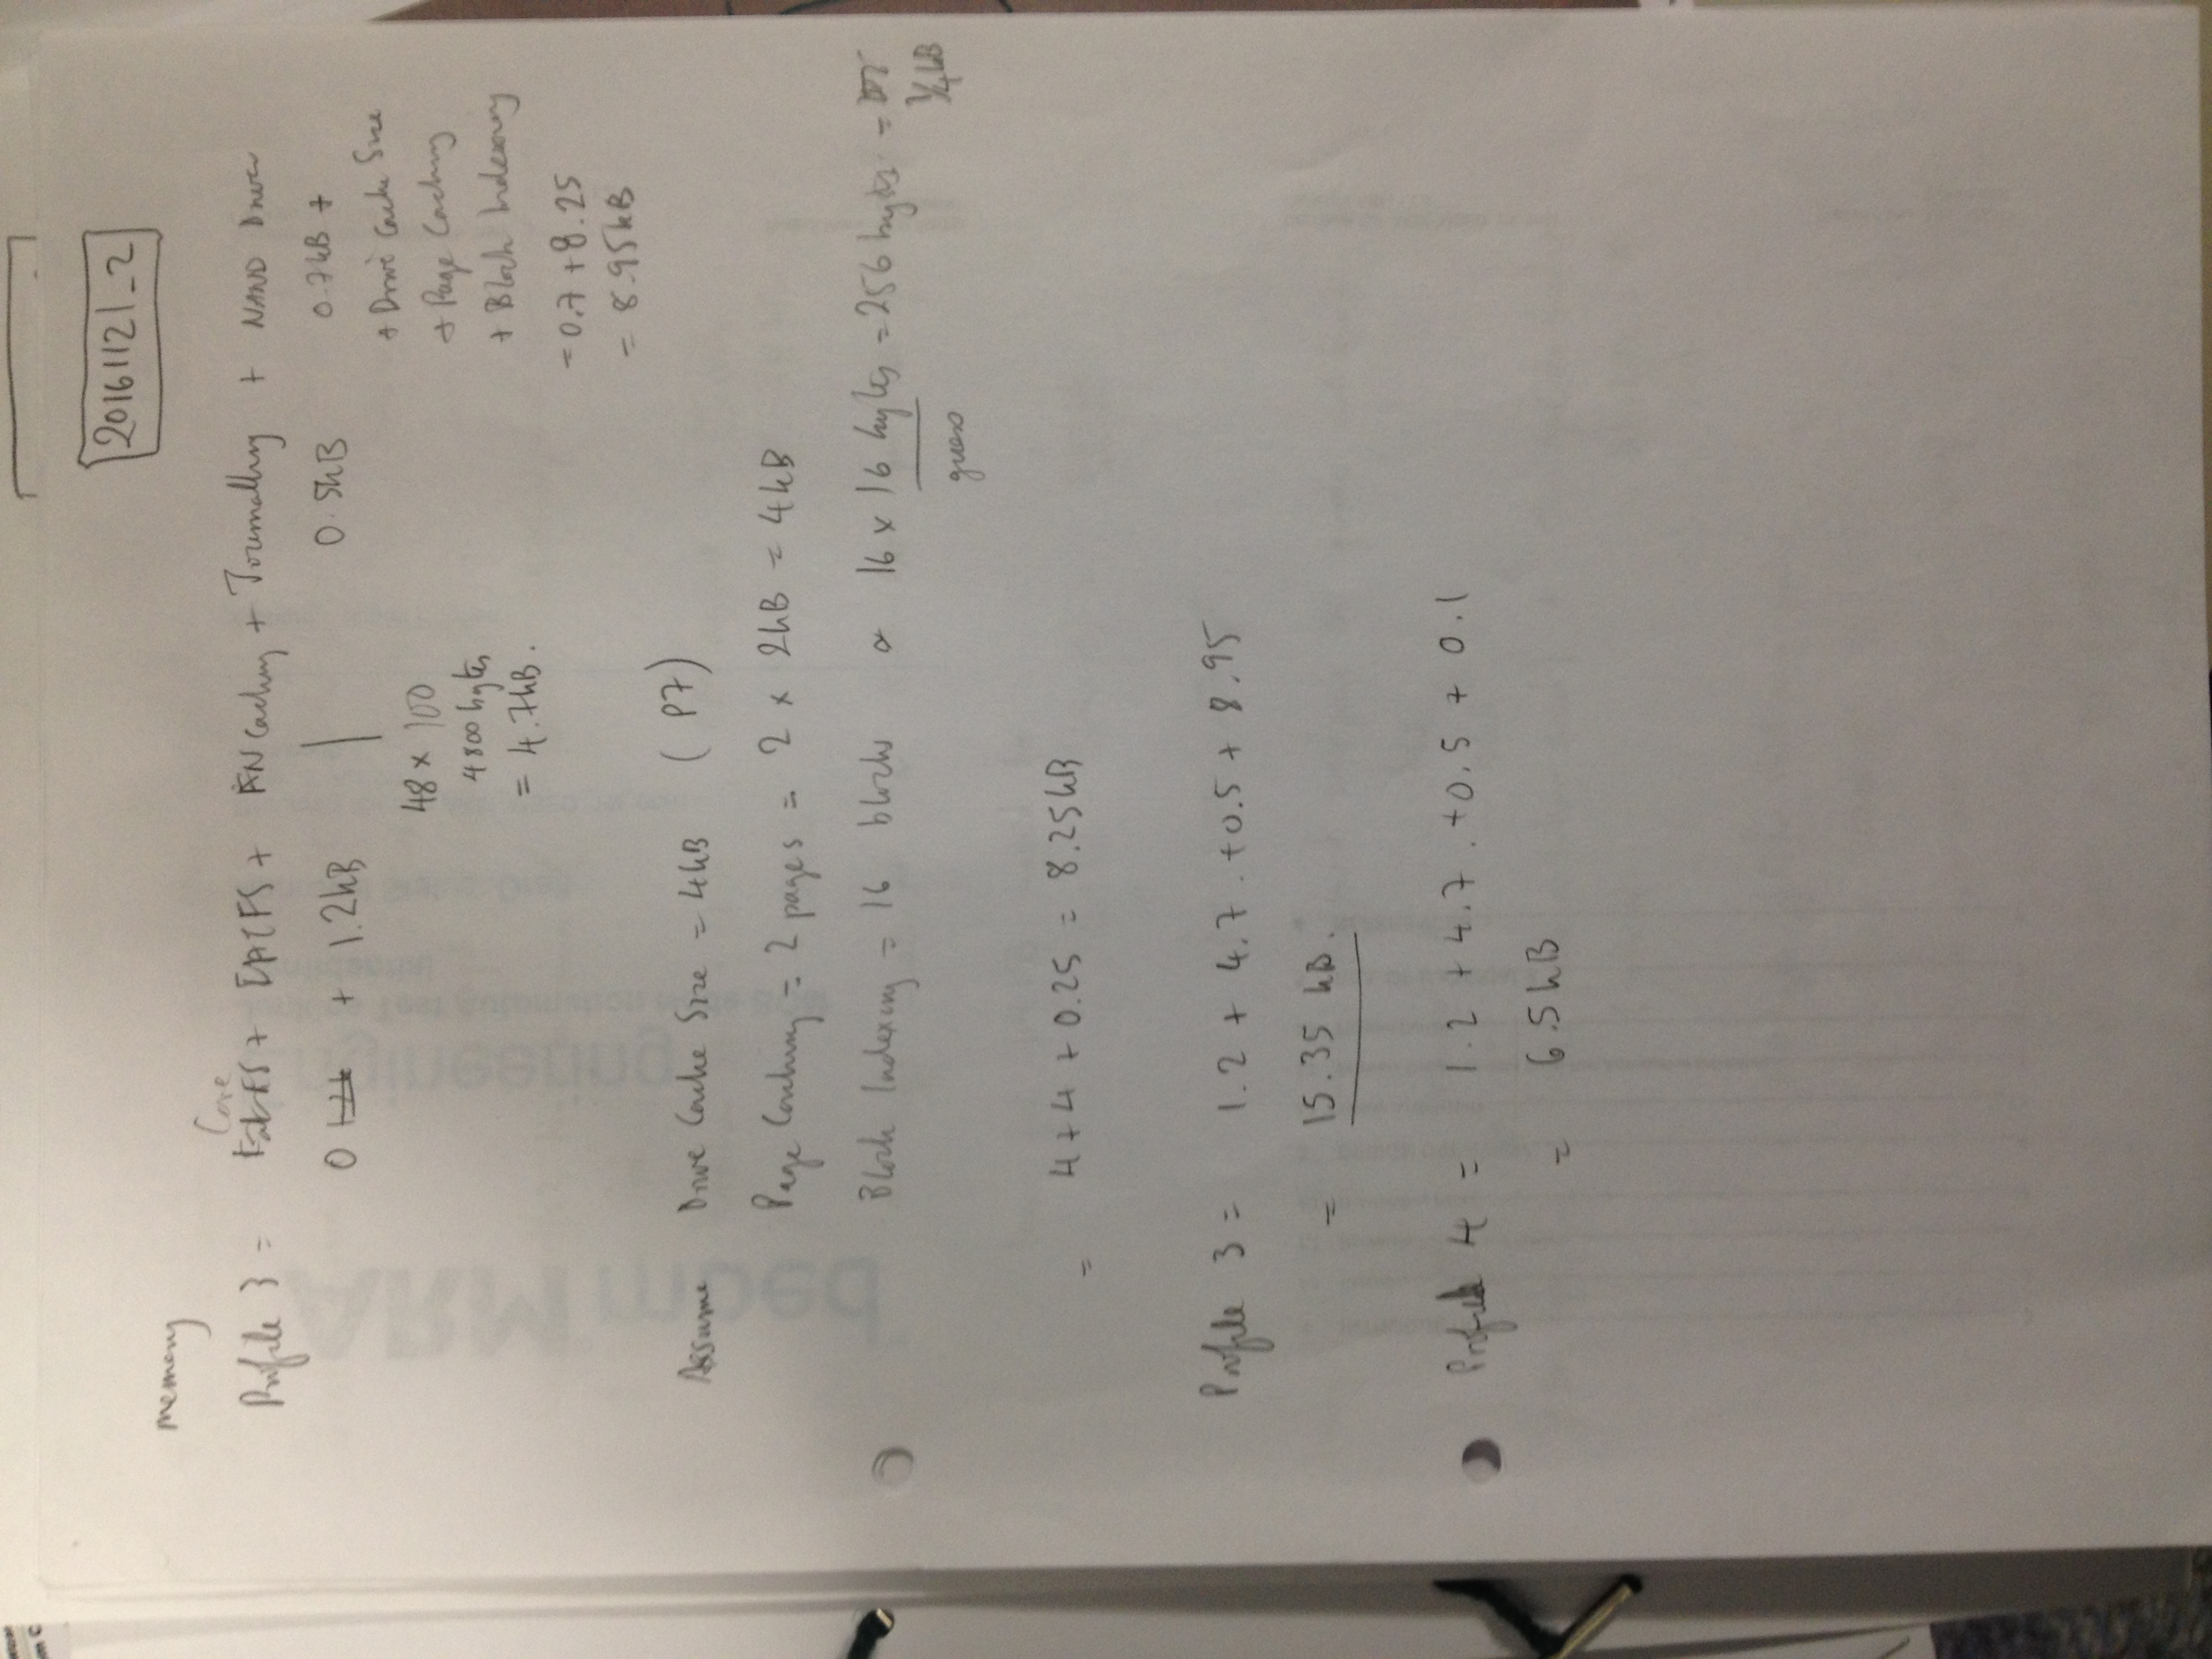 20161121_2
Memory
Core
Profile 3 = FatFS + FATFS + FN Caching + Journalling + NAND Driver
0 + 1.2kB 0.5kB 0.7kB +
+ Drive Cache Size
48 x 100
+ Page Caching
4800 bytes
+ Block Indexing
= 4.7kB.
= 0.7 + 8.25
= 8.95kB
Assume Drive Cache Size = 4kB (P7)
Page Caching = 2 pages = 2 x 2kB = 4kB
Block Indexing = 16 blocks 16 x 16 bytes = 256 bytes =
1/4kB
guess
= 4 + 4 + 0.25 = 8.25kB
Profile 3 = 1.2 + 4.7 + 0.5 + 8.95
= 15.35 kB.
Profile 4 = 1.2 + 4.7 + 0.5 + 0.1
= 6.5kB
ARM mbed